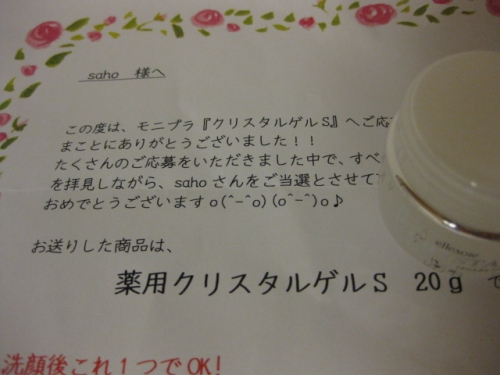 saho 様へ
この度は、モニプラ『クリスタルゲルS』へご応
まことにありがとうございました！！
たくさんのご応募をいただきました中で、すべ
を拝見しながら、sahoさんをご当選とさせて
おめでとうございますo(^-^o)(o^-^)o♪
お送りした商品は、
薬用クリスタルゲルS 20g で
洗顔後これ1つでOK!